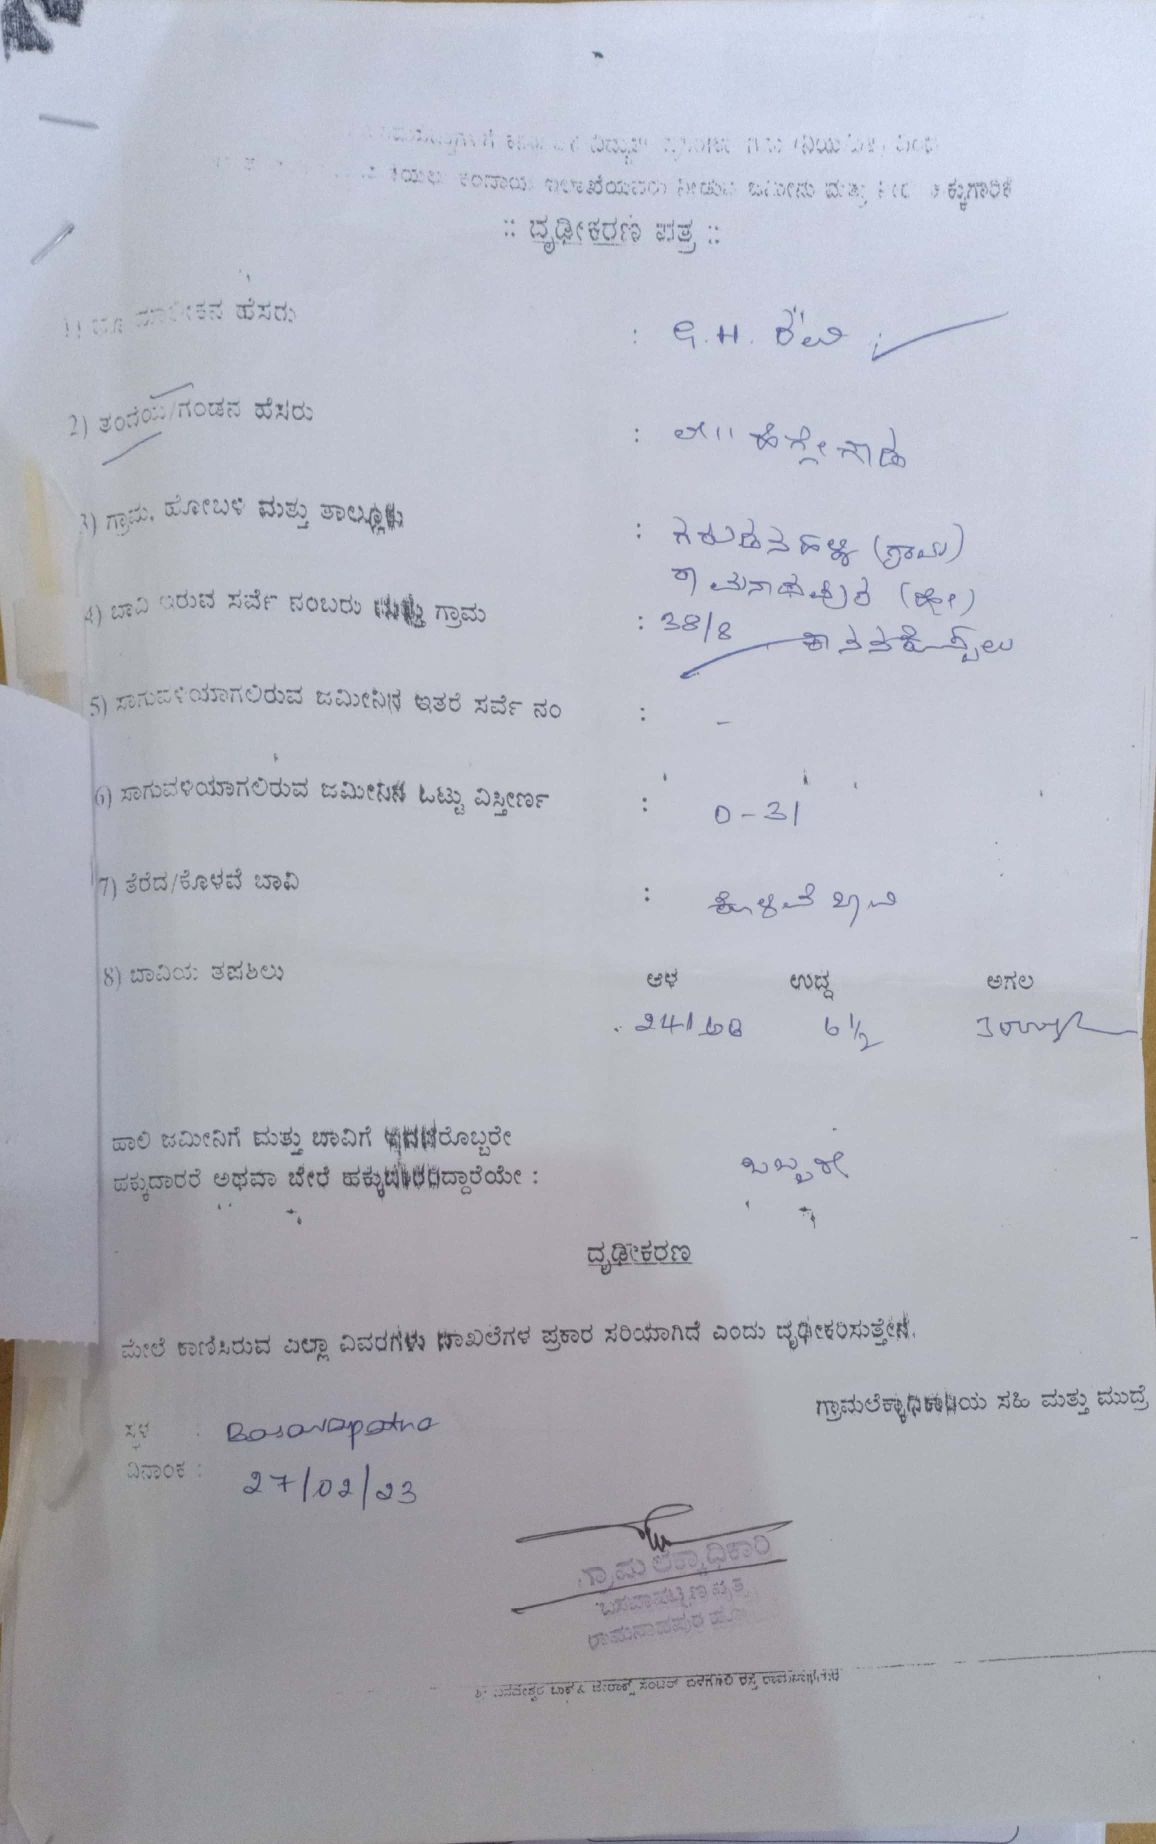 :: ದೃಢೀಕರಣ ಪತ್ರ ::
1) ಭೂ ಮಾಲೀಕನ ಹೆಸರು : G.H. ರವಿ
2) ತಂದೆಯ/ಗಂಡನ ಹೆಸರು : ಲೇ|| ಹೆಗ್ಗೇಗೌಡ
3) ಗ್ರಾಮ, ಹೋಬಳಿ ಮತ್ತು ತಾಲ್ಲೂಕು : ಗರುಡನಹಳ್ಳಿ (ಗ್ರಾಮ)
ರಾಮನಾಥಪುರ (ಹೋ)
4) ಬಾವಿ ಇರುವ ಸರ್ವೆ ನಂಬರು ಮತ್ತು ಗ್ರಾಮ : 38/8
5) ಸಾಗುವಳಿಯಾಗಲಿರುವ ಜಮೀನಿನ ಇತರೆ ಸರ್ವೆ ನಂ : -
6) ಸಾಗುವಳಿಯಾಗಲಿರುವ ಜಮೀನಿನ ಒಟ್ಟು ವಿಸ್ತೀರ್ಣ : 0-31
7) ತೆರೆದ/ಕೊಳವೆ ಬಾವಿ : ಕೊಳವೆ ಬಾವಿ
8) ಬಾವಿಯ ತಪಶಿಲು ಆಳ ಉದ್ದ ಅಗಲ
6 ½
ಹಾಲಿ ಜಮೀನಿಗೆ ಮತ್ತು ಬಾವಿಗೆ ಇವರೊಬ್ಬರೇ
ಹಕ್ಕುದಾರರೆ ಅಥವಾ ಬೇರೆ ಹಕ್ಕುದಾರರಿದ್ದಾರೆಯೇ : ಒಬ್ಬರೇ
ದೃಢೀಕರಣ
ಮೇಲೆ ಕಾಣಿಸಿರುವ ಎಲ್ಲಾ ವಿವರಗಳು ದಾಖಲೆಗಳ ಪ್ರಕಾರ ಸರಿಯಾಗಿದೆ ಎಂದು ದೃಢೀಕರಿಸುತ್ತೇನೆ.
ಗ್ರಾಮಲೆಕ್ಕಾಧಿಕಾರಿಯ ಸಹಿ ಮತ್ತು ಮುದ್ರೆ
ಸ್ಥಳ : Basavapatna
ದಿನಾಂಕ : 27/02/23
ಗ್ರಾಮ ಲೆಕ್ಕಾಧಿಕಾರಿ
ಬಸವಾಪಟ್ಟಣ ವೃತ್ತ
ರಾಮನಾಥಪುರ ಹೋ